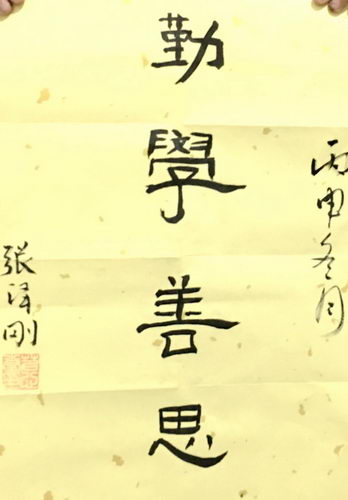 丙申冬月
勤學善思
張澤剛